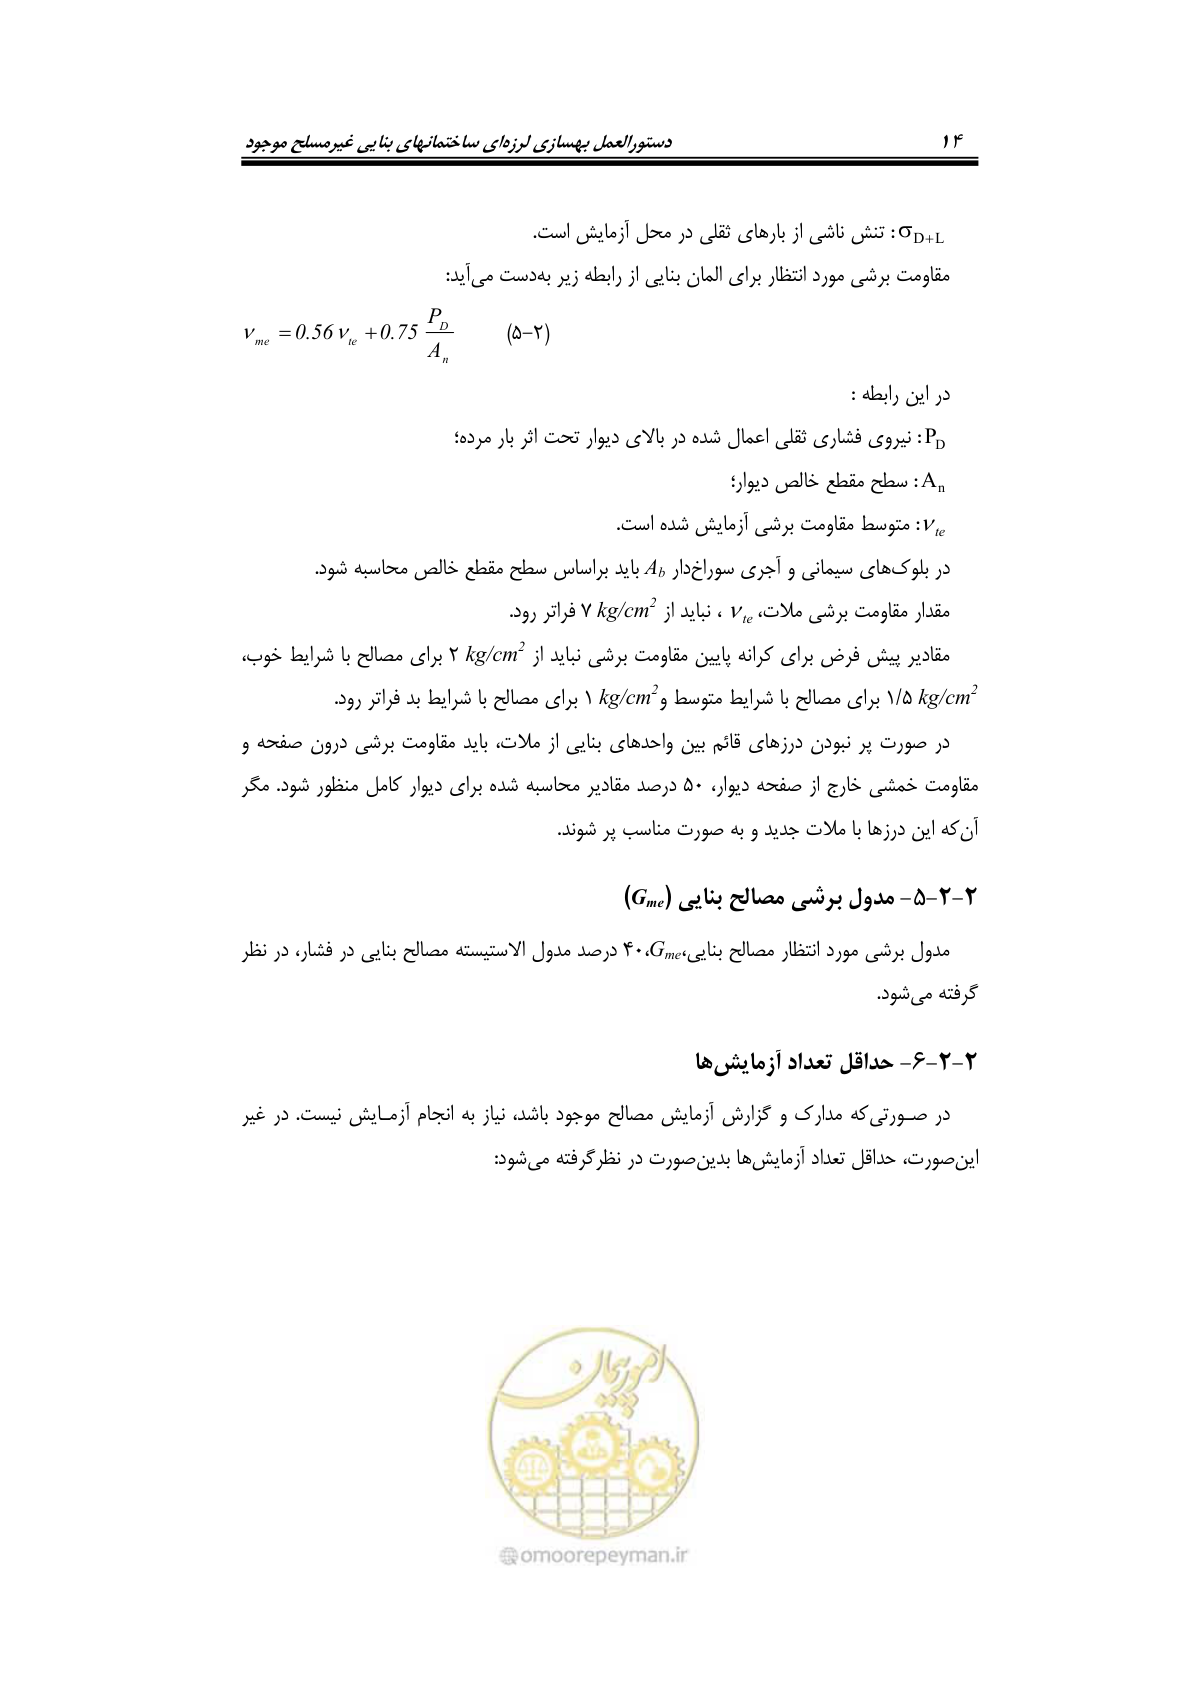 ۱۴ دستورالعمل بهسازی لرزه‌ای ساختمانهای بنایی غیرمسلح موجود
σD+L: تنش ناشی از بارهای ثقلی در محل آزمایش است.
مقاومت برشی مورد انتظار برای المان بنایی از رابطه زیر به‌دست می‌آید:
ν me = 0.56 ν te + 0.75 P D / A n (۲-۵)
در این رابطه :
PD: نیروی فشاری ثقلی اعمال شده در بالای دیوار تحت اثر بار مرده؛
An: سطح مقطع خالص دیوار؛
ν te: متوسط مقاومت برشی آزمایش شده است.
در بلوک‌های سیمانی و آجری سوراخ‌دار Ab باید براساس سطح مقطع خالص محاسبه شود.
مقدار مقاومت برشی ملات، ν te ، نباید از ۷ kg/cm² فراتر رود.
مقادیر پیش فرض برای کرانه پایین مقاومت برشی نباید از ۲ kg/cm² برای مصالح با شرایط خوب،
۱/۵ kg/cm² برای مصالح با شرایط متوسط و ۱ kg/cm² برای مصالح با شرایط بد فراتر رود.
در صورت پر نبودن درزهای قائم بین واحدهای بنایی از ملات، باید مقاومت برشی درون صفحه و
مقاومت خمشی خارج از صفحه دیوار، ۵۰ درصد مقادیر محاسبه شده برای دیوار کامل منظور شود. مگر
آن‌که این درزها با ملات جدید و به صورت مناسب پر شوند.
۲-۲-۵- مدول برشی مصالح بنایی (Gme)
مدول برشی مورد انتظار مصالح بنایی،Gme،۴۰ درصد مدول الاستیسته مصالح بنایی در فشار، در نظر
گرفته می‌شود.
۲-۲-۶- حداقل تعداد آزمایش‌ها
در صـورتی‌که مدارک و گزارش آزمایش مصالح موجود باشد، نیاز به انجام آزمـایش نیست. در غیر
این‌صورت، حداقل تعداد آزمایش‌ها بدین‌صورت در نظرگرفته می‌شود:
امور پیمان
@omoorepeyman.ir